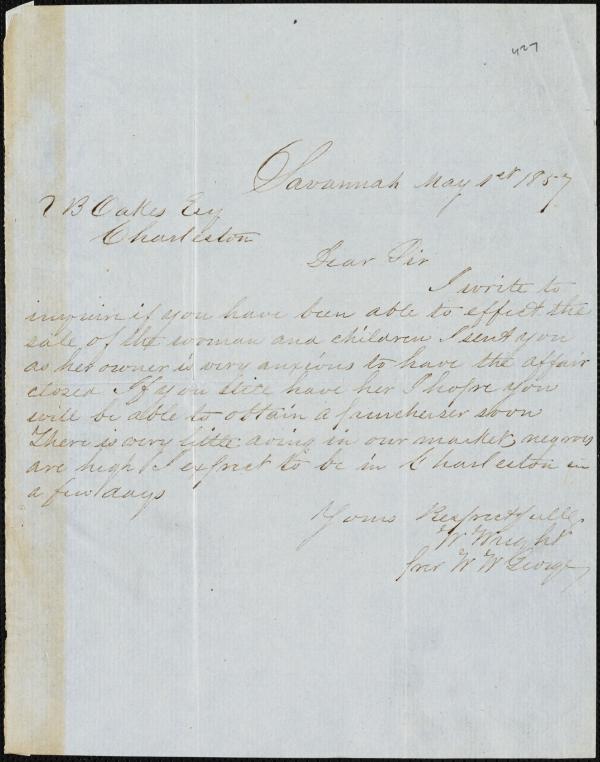 427
Savannah May 1st 1857
Z B Oakes Esq
Charleston
Dear Sir
I write to
inquire if you have been able to effect the
sale of the woman and children I sent you
as her owner is very anxious to have the affair
closed If you still have her I hope you
will be able to obtain a purcheser soon
There is very little doing in our market, negroes
are high I expect to be in Charleston in
a few days
Yours Respectfully
W Wright
per W W George